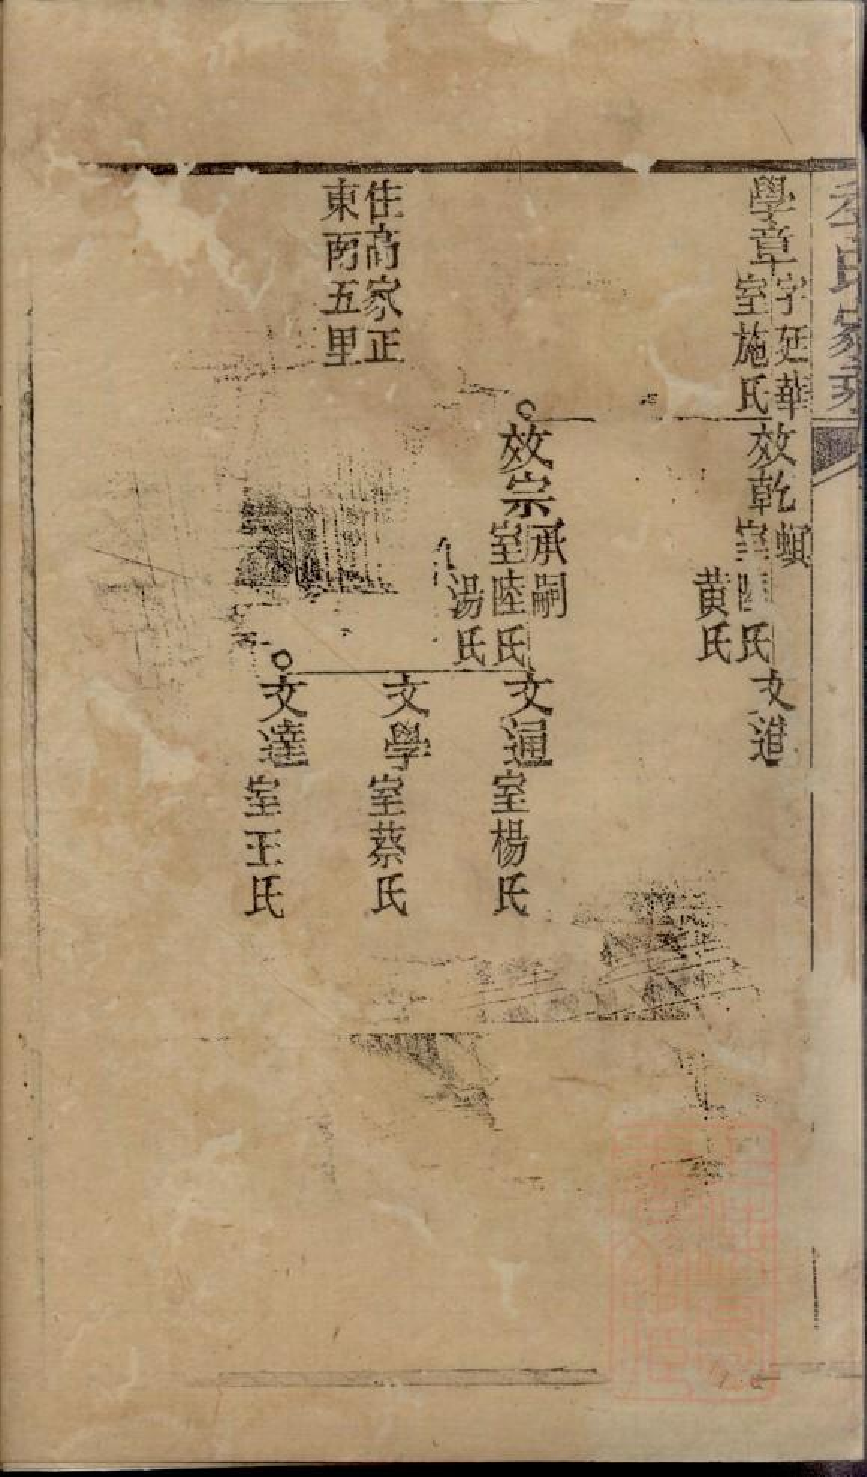 氏家乘
學章
字廷華
室施氏
效乾
螟
室陸氏
黃氏
文進
效宗
承嗣
室陸氏
湯氏
文通
室楊氏
文學
室蔡氏
文達
室王氏
住高家正
東南五里